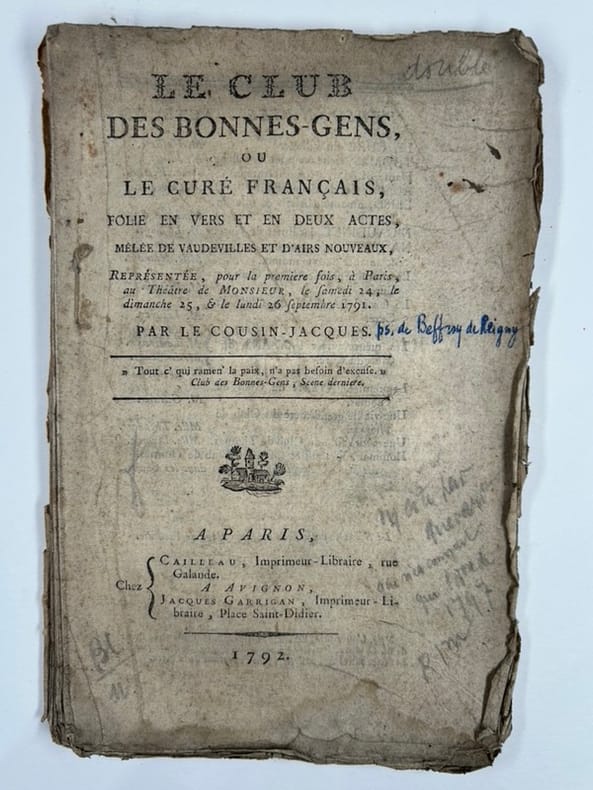 double
LE CLUB
DES BONNES-GENS,
OU
LE CURÉ FRANÇAIS,
FOLIE EN VERS ET EN DEUX ACTES,
MÊLÉE DE VAUDEVILLES ET D'AIRS NOUVEAUX,
REPRÉSENTÉE, pour la premiere fois, à Paris,
au Théâtre de MONSIEUR, le samedi 24, le
dimanche 25, & le lundi 26 septembre 1791.
PAR LE COUSIN-JACQUES. ps. de Beffroy de Reigny
» Tout c' qui ramen' la paix, n'a pas besoin d'excuse. »
Club des Bonnes-Gens, Scene derniere.
A PARIS,
CAILLEAU, Imprimeur-Libraire, rue
Galande.
Chez
A AVIGNON,
JACQUES GARRIGAN, Imprimeur-Li-
braire, Place Saint-Didier.
1792.